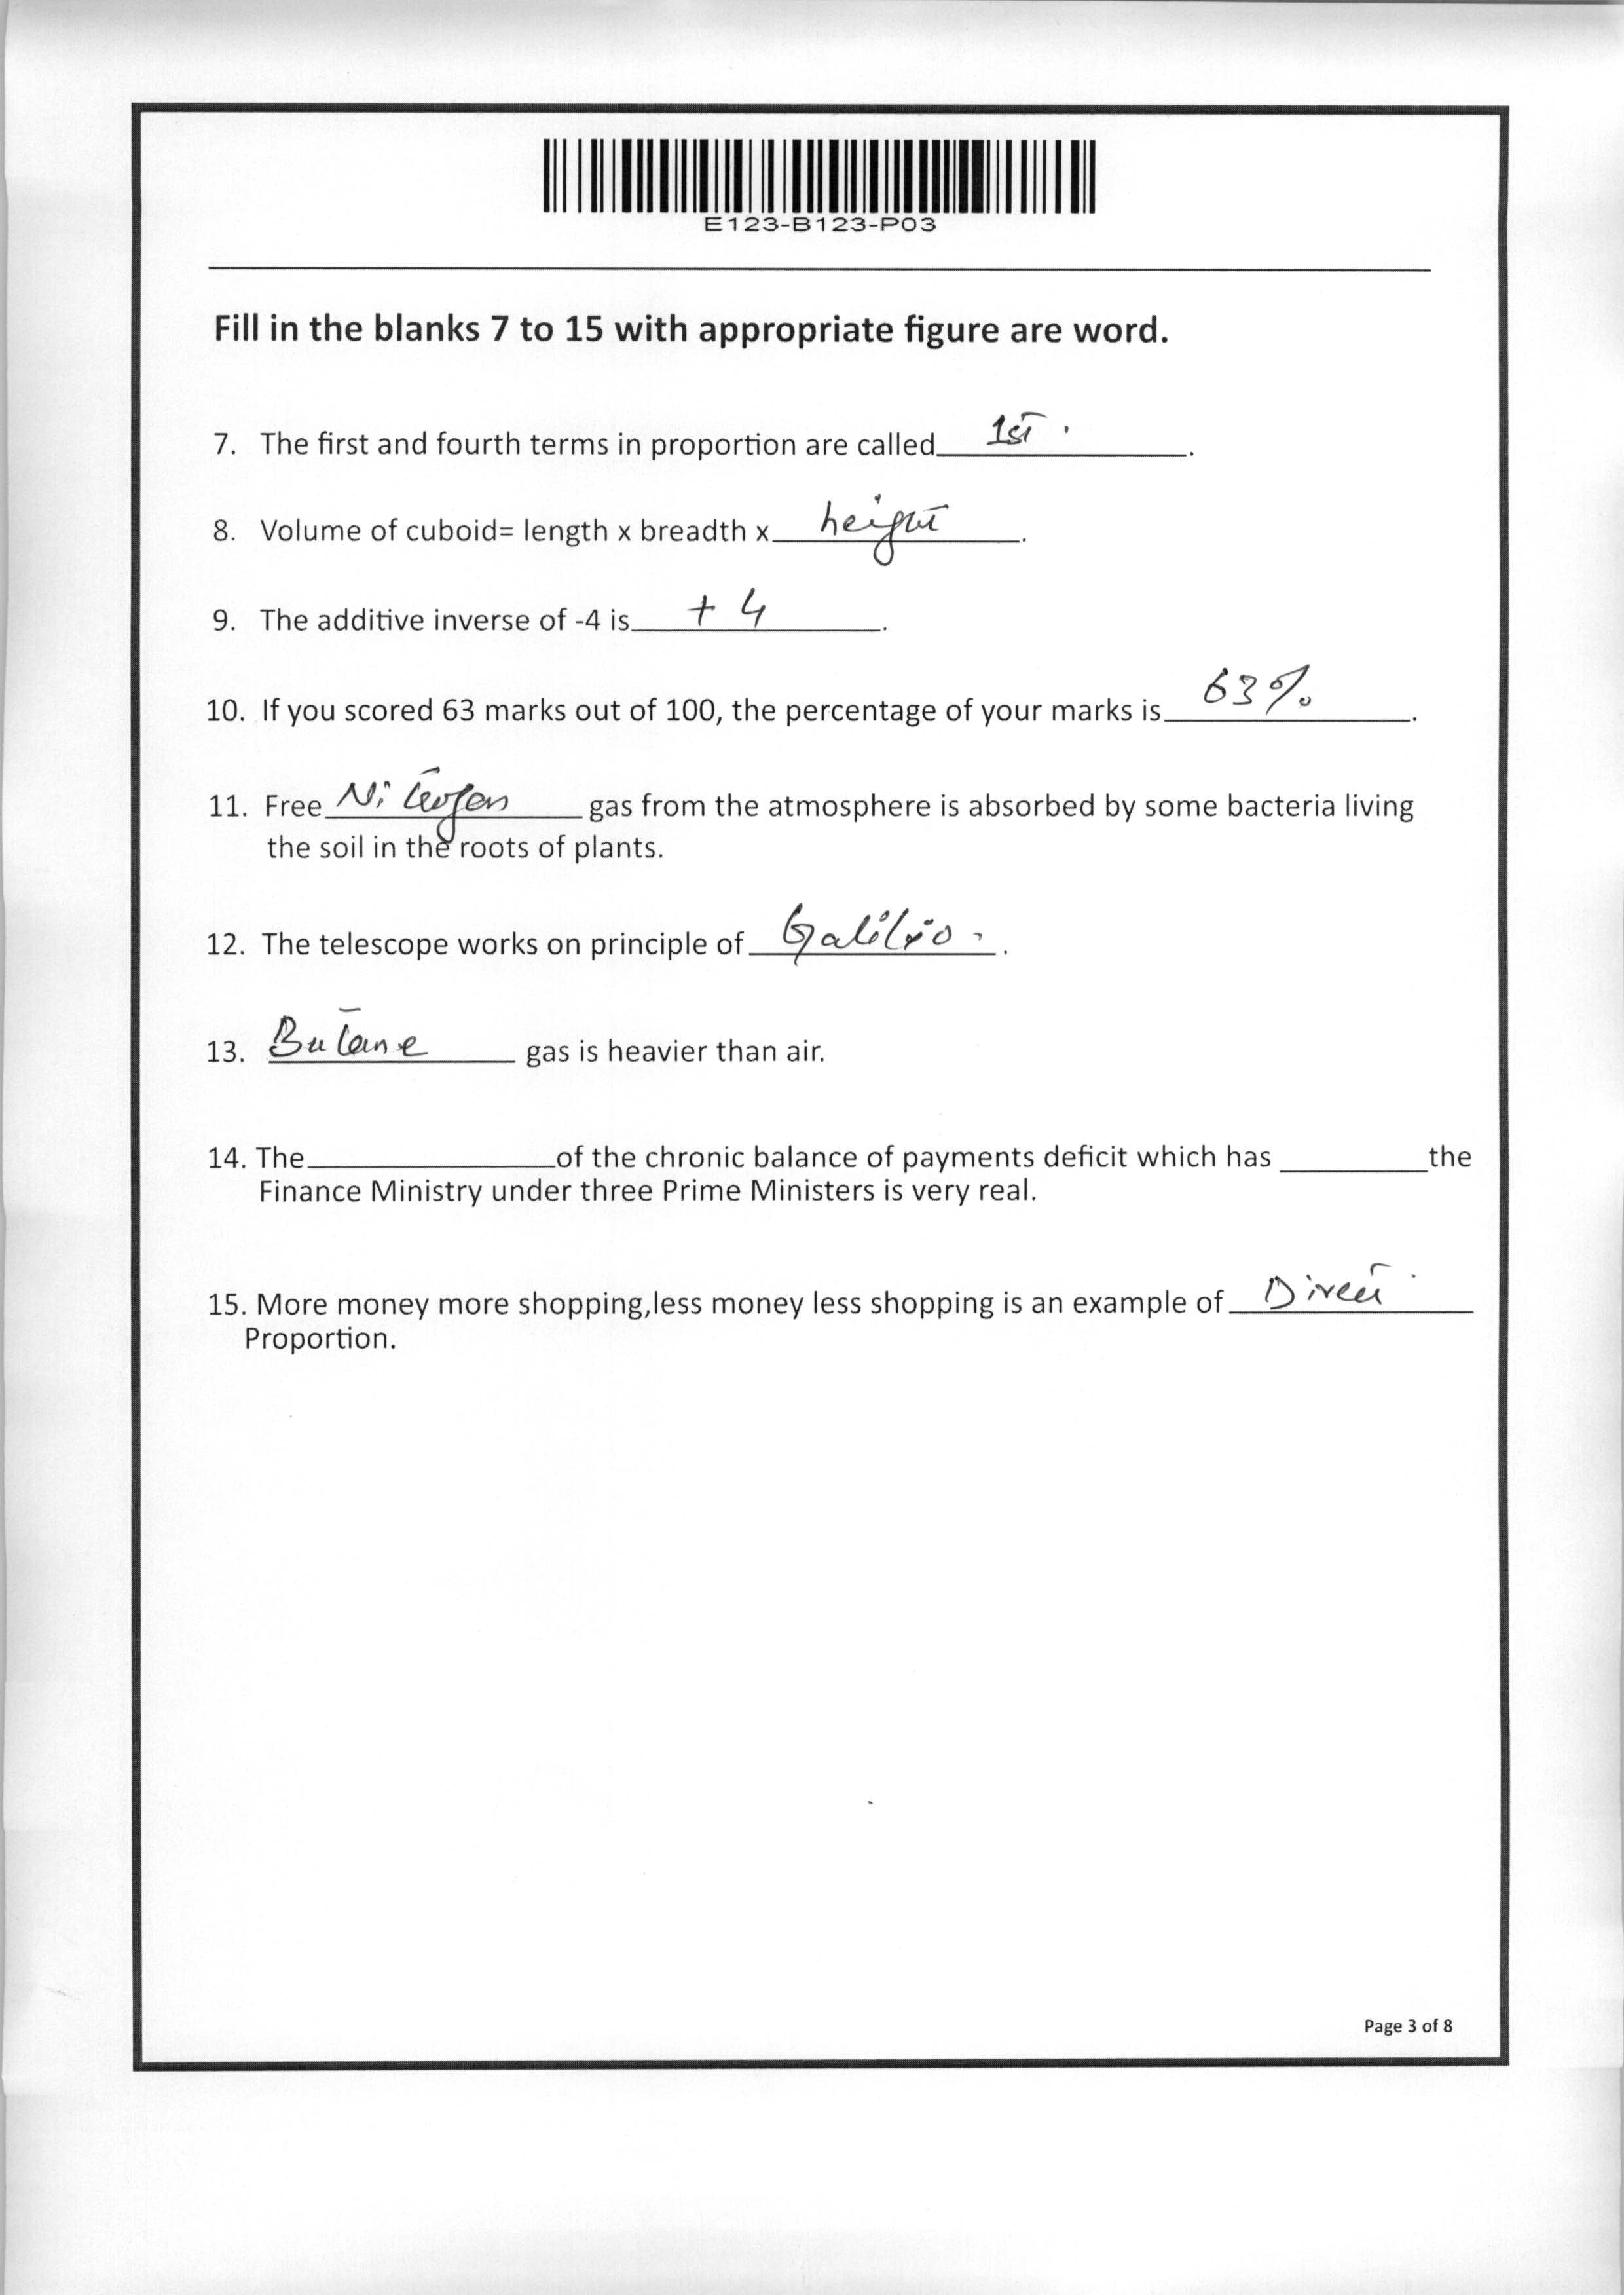 E123-B123-P03
Fill in the blanks 7 to 15 with appropriate figure are word.
7. The first and fourth terms in proportion are called 1st.
8. Volume of cuboid= length x breadth x height.
9. The additive inverse of -4 is +4.
10. If you scored 63 marks out of 100, the percentage of your marks is 63%.
11. Free Nitrogen gas from the atmosphere is absorbed by some bacteria living
the soil in the roots of plants.
12. The telescope works on principle of Galilio.
13. Butane gas is heavier than air.
14. The______of the chronic balance of payments deficit which has ______the
Finance Ministry under three Prime Ministers is very real.
15. More money more shopping,less money less shopping is an example of Direct
Proportion.
Page 3 of 8